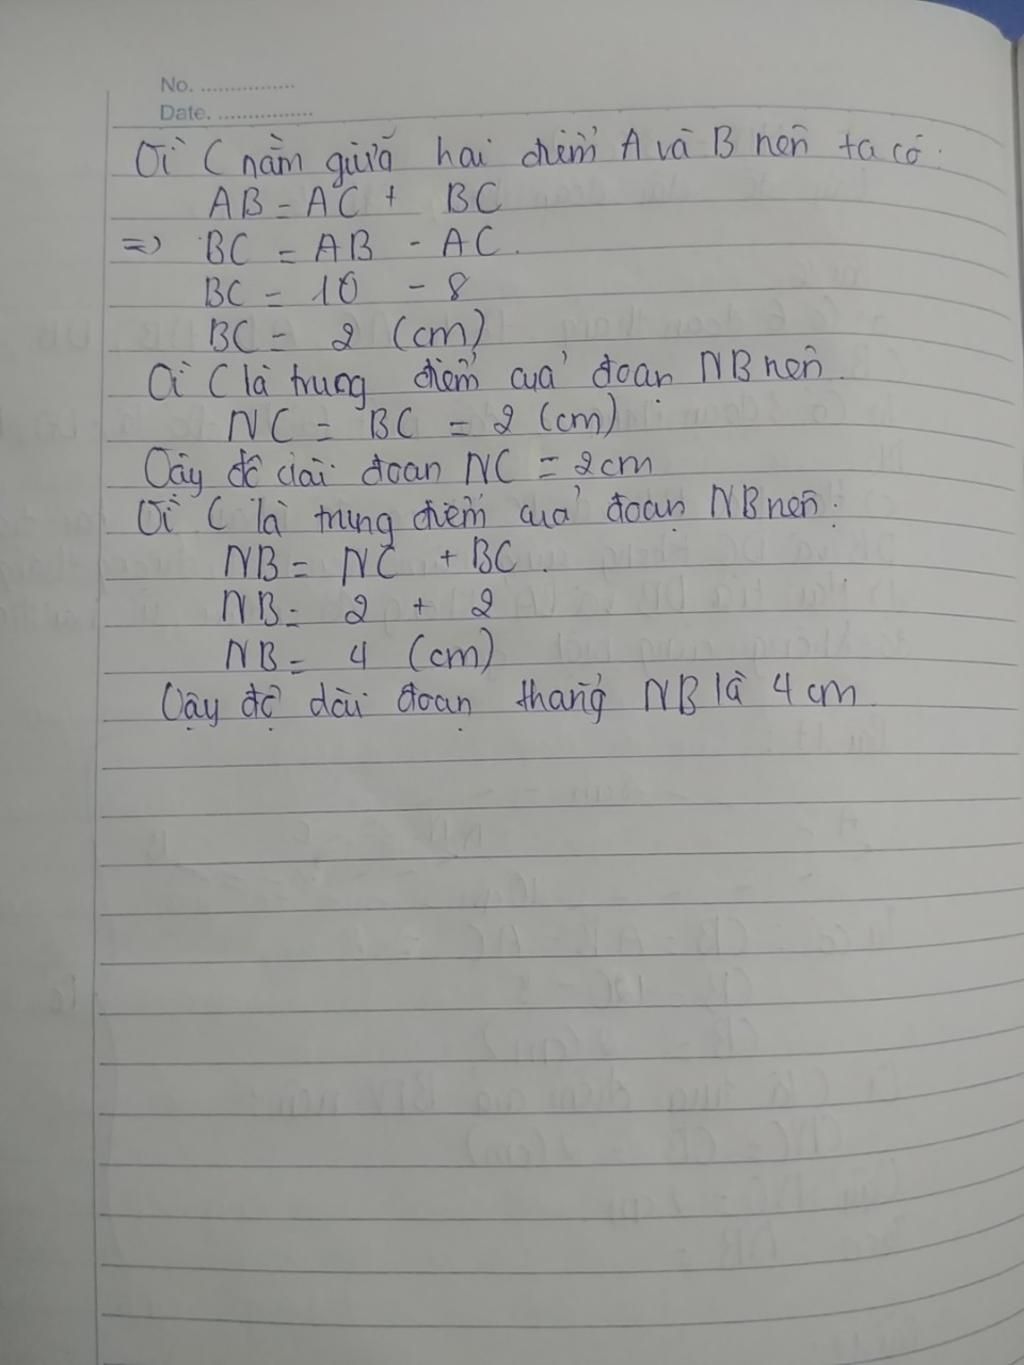 No. ................
Date. ................
Vì C nằm giữa hai điểm A và B nên ta có:
AB = AC + BC
=> BC = AB - AC.
BC = 10 - 8
BC = 2 (cm)
Vì C là trung điểm của đoạn NB nên
NC = BC = 2 (cm)
Vậy độ dài đoạn NC = 2cm
Vì C là trung điểm của đoạn NB nên:
NB = NC + BC.
NB = 2 + 2
NB = 4 (cm)
Vậy độ dài đoạn thẳng NB là 4 cm